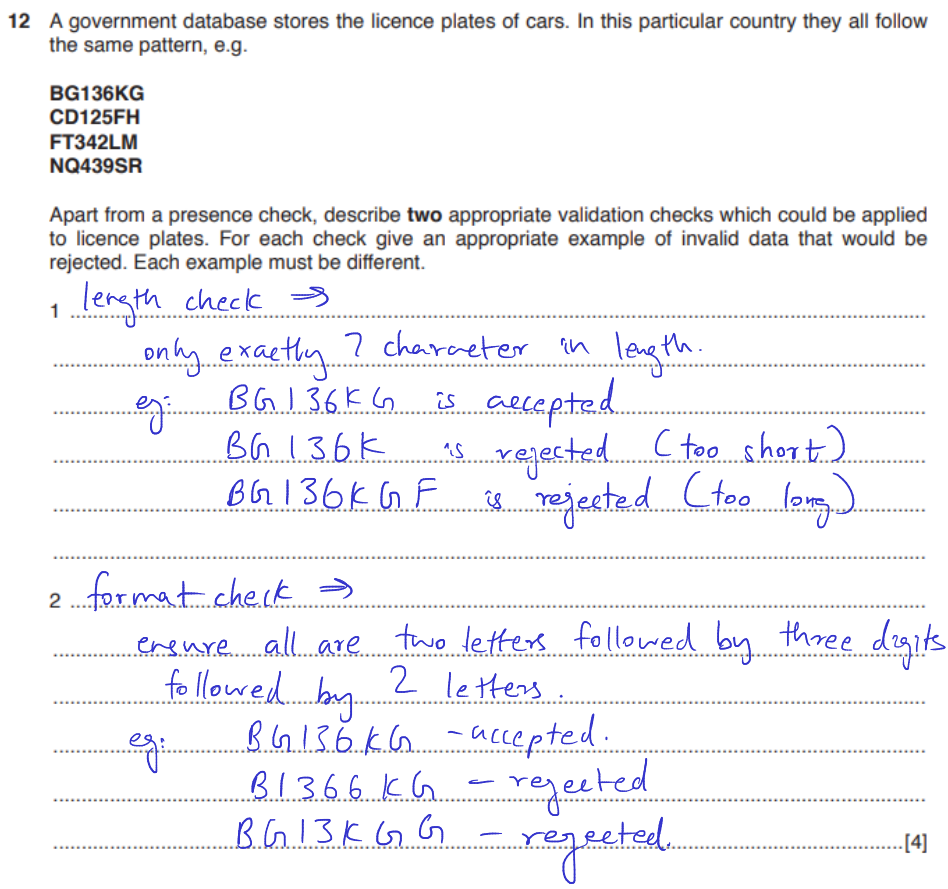 12 A government database stores the licence plates of cars. In this particular country they all follow
the same pattern, e.g.
BG136KG
CD125FH
FT342LM
NQ439SR
Apart from a presence check, describe two appropriate validation checks which could be applied
to licence plates. For each check give an appropriate example of invalid data that would be
rejected. Each example must be different.
1 length check ⇒
only exactly 7 character in length.
eg: BG136KG is accepted
BG136K is rejected (too short)
BG136KGF is rejected (too long)
2 format check ⇒
ensure all are two letters followed by three digits
followed by 2 letters.
eg: BG136KG - accepted.
B1366KG - rejected
BG13KGG - rejected.
[4]